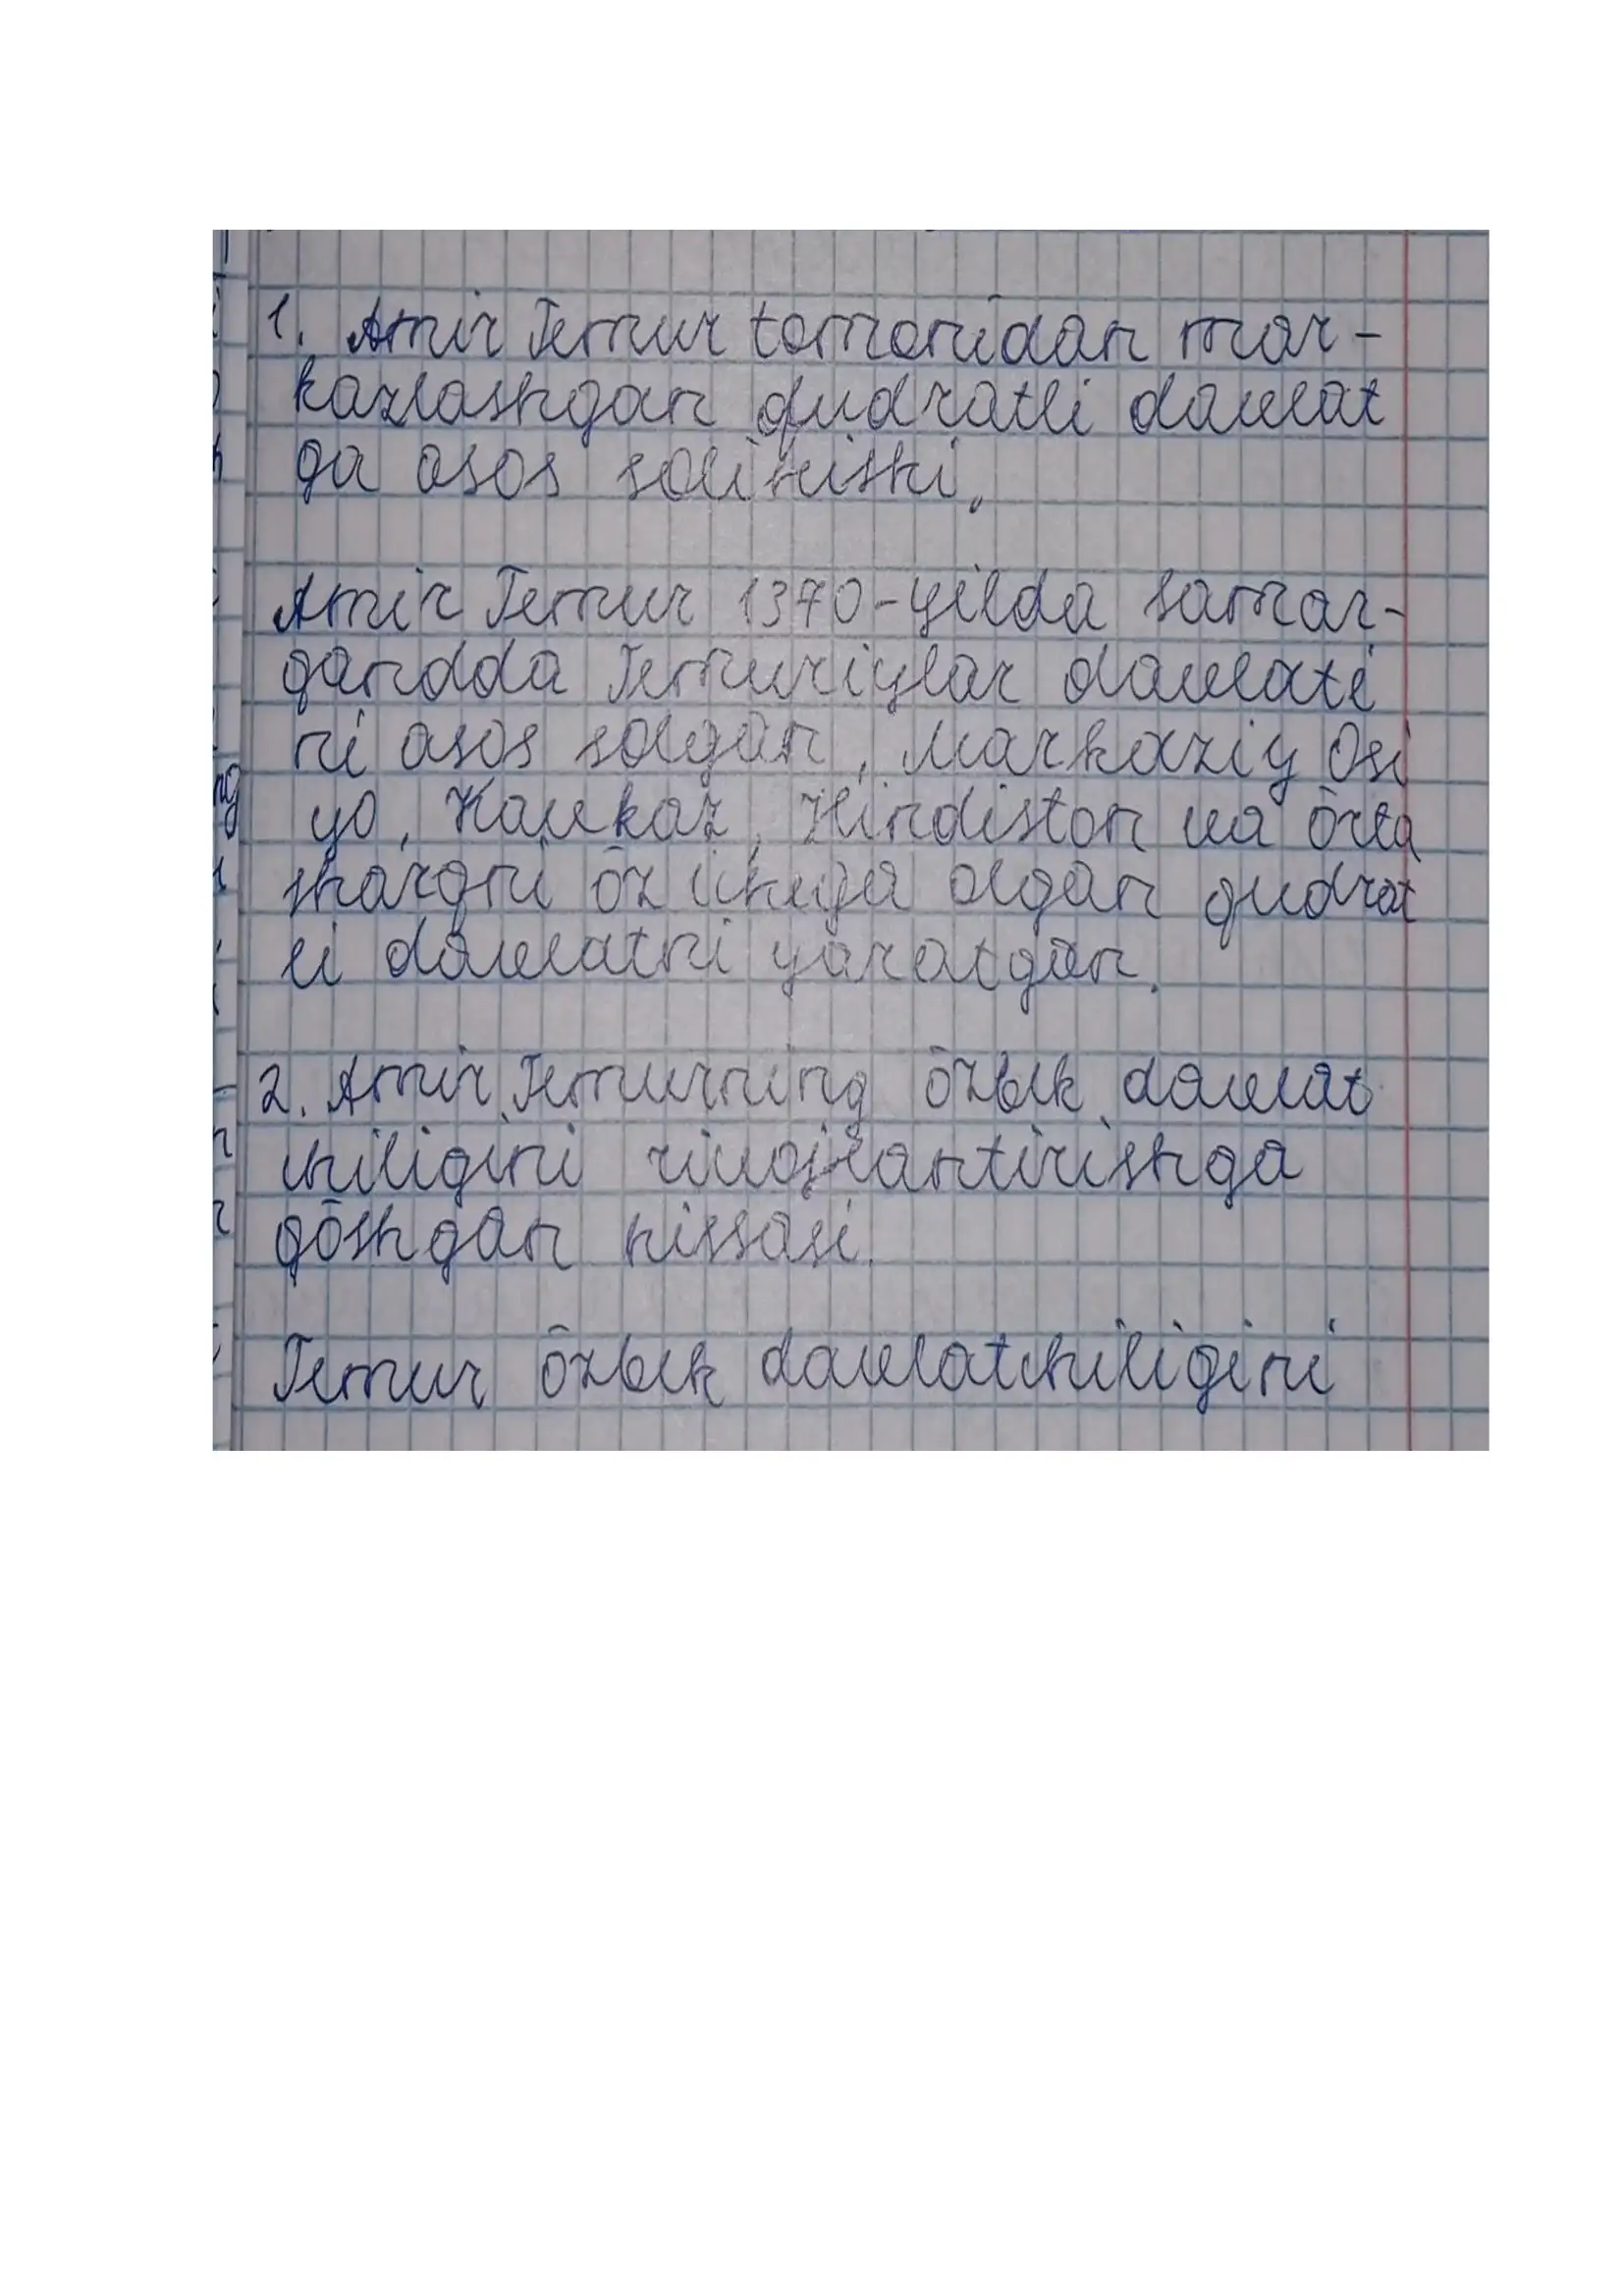 1. Amir Temur tomonidan mar-
kazlashgan qudratli davlat
ga asos solinishi.
Amir Temur 1370-yilda Samar-
qandda Temuriylar davlati
ni asos solgan, Markaziy Osi
yo, Kavkaz, Hindiston va õrta
sharqni õz ichiga olgan qudrat
li davlatni yaratgan.
2. Amir Temurning õzbek davlat
chiligini rivojlantirishga
qõshgan hissasi.
Temur õzbek davlatchiligini